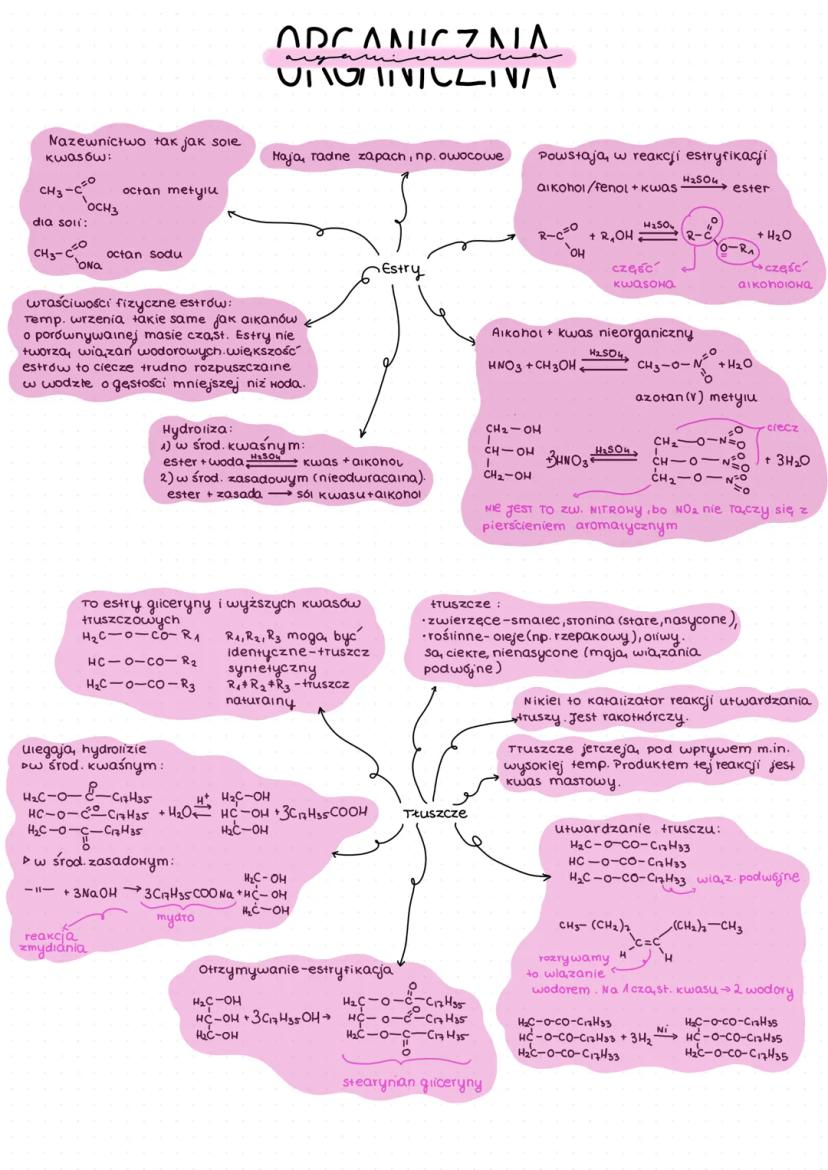 ORGANICZNA
organiczna
Nazewnictwo tak jak sole
kwasów:
CH₃-C=O OCH₃ octan metylu
dla soli:
CH₃-C=O ONa octan sodu
Mają ładne zapach, np. owocowe
Powstają w reakcji estryfikacji
alkohol/fenol + kwas H₂SO₄ ⇌ ester
R-C=O OH + R₁OH H₂SO₄ ⇌ R-C=O O-R₁ + H₂O
część kwasowa
część alkoholowa
Estry
Właściwości fizyczne estrów:
Temp. wrzenia takie same jak alkanów
o porównywalnej masie cząst. Estry nie
tworzą wiązań wodorowych. większość
estrów to ciecze trudno rozpuszczalne
w wodzie o gęstości mniejszej niż woda.
Alkohol + kwas nieorganiczny
HNO₃ + CH₃OH H₂SO₄ ⇌ CH₃-O-N=O =O + H₂O
azotan(V) metylu
CH₂-OH
CH-OH
CH₂-OH
+ 3HNO₃ H₂SO₄ ⇌
CH₂-O-N=O =O
CH-O-N=O =O
CH₂-O-N=O =O
+ 3H₂O
ciecz
NIE JEST TO ZW. NITROWY, bo NO₂ nie łączy się z
pierścieniem aromatycznym
Hydroliza:
1) w środ. kwaśnym:
ester + woda H₂SO₄ ⇌ kwas + alkohol
2) w środ. zasadowym (nieodwracalna).
ester + zasada → sól kwasu + alkohol
To estry gliceryny i wyższych kwasów
tłuszczowych
H₂C-O-CO-R₁
HC-O-CO-R₂
H₂C-O-CO-R₃
R₁, R₂, R₃ mogą być
identyczne-tłuszcz
syntetyczny
R₁≠R₂≠R₃-tłuszcz
naturalny
tłuszcze:
·zwierzęce-smalec, słonina (stałe, nasycone),
·roślinne-oleje (np. rzepakowy), oliwy.
Są ciekłe, nienasycone (mają wiązania
podwójne)
Nikiel to katalizator reakcji utwardzania
tłuszy. Jest rakotwórczy.
Tłuszcze jełczeją pod wpływem m.in.
wysokiej temp. Produktem tej reakcji jest
kwas masłowy.
Tłuszcze
Ulegają hydrolizie
▹w środ. kwaśnym:
H₂C-O-C=O-C₁₇H₃₅
HC-O-C=O-C₁₇H₃₅
H₂C-O-C=O-C₁₇H₃₅
+ H₂O H⁺ ⇌
H₂C-OH
HC-OH
H₂C-OH
+ 3C₁₇H₃₅COOH
▹ w środ. zasadowym:
-11- + 3NaOH → 3C₁₇H₃₅COONa +
H₂C-OH
HC-OH
H₂C-OH
mydło
reakcja
zmydlania
Utwardzanie tłusczu:
H₂C-O-CO-C₁₇H₃₃
HC-O-CO-C₁₇H₃₃
H₂C-O-CO-C₁₇H₃₃
wiąz. podwójne
CH₃-(CH₂)₇ C=C (CH₂)₇-CH₃
H H
rozrywamy
to wiązanie
wodorem. Na 1 cząst. kwasu → 2 wodory
H₂C-O-CO-C₁₇H₃₃
HC-O-CO-C₁₇H₃₃
H₂C-O-CO-C₁₇H₃₃
+ 3H₂ Ni →
H₂C-O-CO-C₁₇H₃₅
HC-O-CO-C₁₇H₃₅
H₂C-O-CO-C₁₇H₃₅
Otrzymywanie-estryfikacja
H₂C-OH
HC-OH
H₂C-OH
+ 3C₁₇H₃₅OH →
H₂C-O-C=O-C₁₇H₃₅
HC-O-C=O-C₁₇H₃₅
H₂C-O-C=O-C₁₇H₃₅
stearynian gliceryny